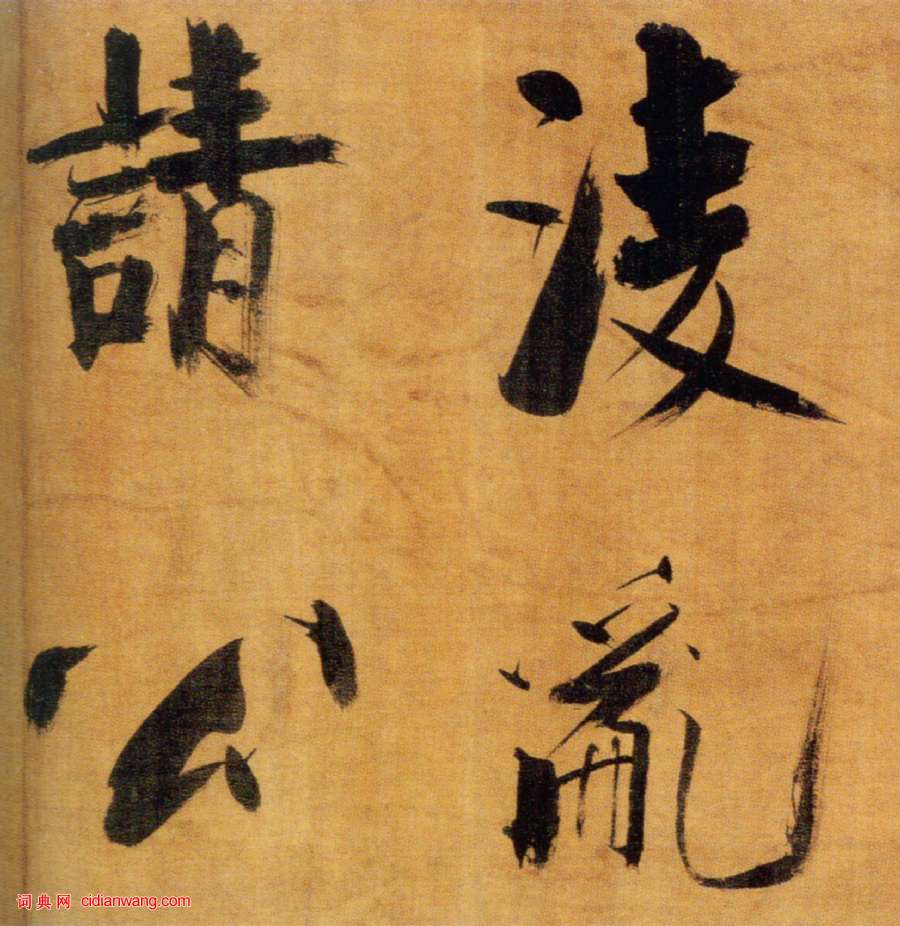 淩亂
請公
词典网 cidianwang.com